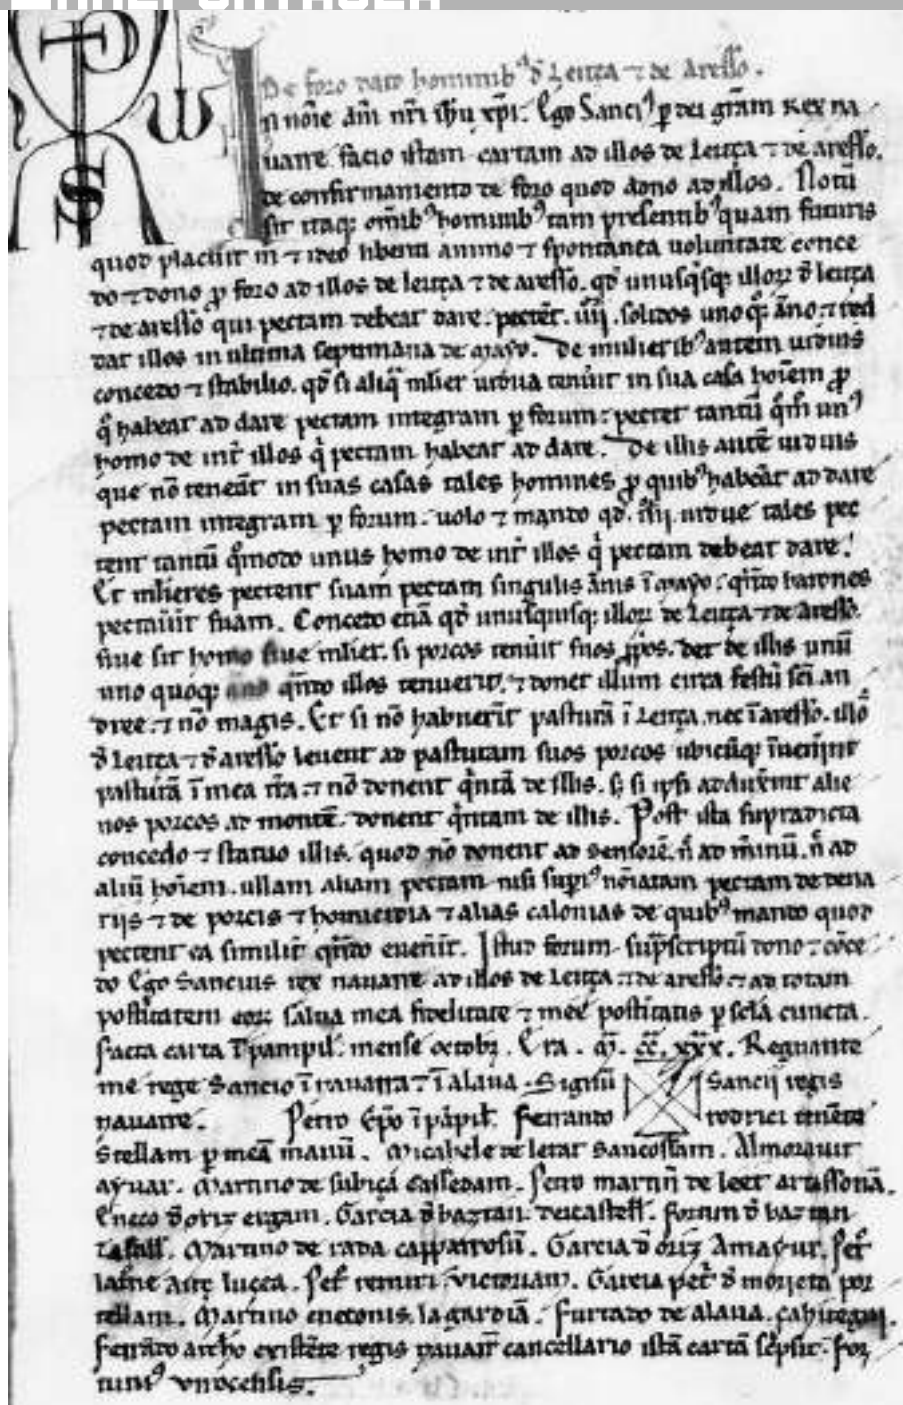 De foro dato hominibꝰ đ Leiẜa ⁊ de Aresso.
In nōie dn̄i nr̄i ihū xp̄i. Ego Sanciꝰ ꝑ dei grām Rex na
uarre facio istam cartam ad illos de leiça ⁊ de aresso.
de confirmamento de foro quod dono ad illos. Notū
sit itaqꝫ om̄ibꝰ hominibꝰ tam presentibꝰ quam futuris
quod placuit m ⁊ ideo libenti animo ⁊ spontanea voluntate conce
do ⁊ dono ꝓ foro ad illos de leiça ⁊ de aresso. qd̄ unusqsqꝫ illoꝝ đ leiça
⁊ de aresso qui pectam debeat dare. pectēt. iiij. solidos unoqꝫ āno. ⁊ red
dat illos in ultima septimana de mayo. De mulieribꝰ autem uiduis
concedo ⁊ stabilio. qd̄ si aliq̄ mlier uidua tenuit in sua casa hoīem ꝓ
q̄ habeat ad dare pectam integram ꝑ forum: pectet tantū q̄m unꝰ
homo de int̄ illos q̄ pectam habeat ad dare. De illis autē uiduis
que nō teneāt in suas casas tales homines ꝓ quibꝰ habeāt ad dare
pectam integram ꝑ forum. uolo ⁊ mando qd̄. iiij. uidue tales pec
tent tantū q̄modo unus homo de int̄ illos q̄ pectam debeat dare.
Et mlieres pectent suam pectam singulis ānis ī mayo. q̄ndo barones
pectauīt suam. Concedo etiā qd̄ unusquisqꝫ illoꝝ de Leiça ⁊ de Aresso.
siue sit homo siue mlier. si porcos tenuit suos ꝓpos. det de illis unū
uno quoqꝫ āno q̄ndo illos tenuerit. ⁊ donet illum circa festū sci an
dree. ⁊ nō magis. Et si nō habuerīt pasturā ī Leiça. nec ī aresso. illo
đ leiça ⁊ đ aresso leuent ad pasturam suos porcos ubicūqꝫ īuenīnt
pasturā ī mea tr̄a. ⁊ nō donent q̄ntā de illis. sꝫ si ipsi aduxīnt alie
nos porcos ad montē. donent q̄ntam de illis. Post ista supradicta
concedo ⁊ statuo illis. quod nō donent ad sensorē. n̄ ad mīnū. n̄ ad
aliū hoīem. ullam aliam pectam nisi supiꝰ nōiatam pectam de dena
rijs ⁊ de porcis ⁊ homicidia ⁊ alias calonias de quibꝰ mando quod
pectent ea similit̄ q̄ndo euenīt. Istud forum supscriptū dono ⁊ cōce
do Ego Sancius rex nauarre ad illos de Leiça. ⁊ de aresso. ⁊ ad totam
postitatem eoꝝ salua mea fidelitate ⁊ mee postitatis ꝑ scla cuncta.
Facta carta ī pampil. mense octobꝝ. Era. M. cc. xxx. Regnante
me rege Sancio ī nauarra ⁊ ī alaua. Signū Sancij regis
nauarre. Petro Epo ī pāpil. Ferrando rodrici tenēte
Stellam ꝑ meā manū. Micahele de letat Sancossam. Almorauit
aynar. Martino de subiça Cassedam. Petro martini de leet artassonā.
Eneco đ oriz ergam. Garcia đ baztan. Fortun đ baztan
tafall. Martino de rada capparrosū. Garcia đ oriz Amayur. Pet̄
lucea. Pet̄ remiri victoriam. Garcia pet̄ đ morieta por
tellam. Martino eneconis. lagardiā. Furtado de alaua.
Ferrādo existēte regis nauarr̄ cancellario istā cartā scpsit. For
tuniꝰ